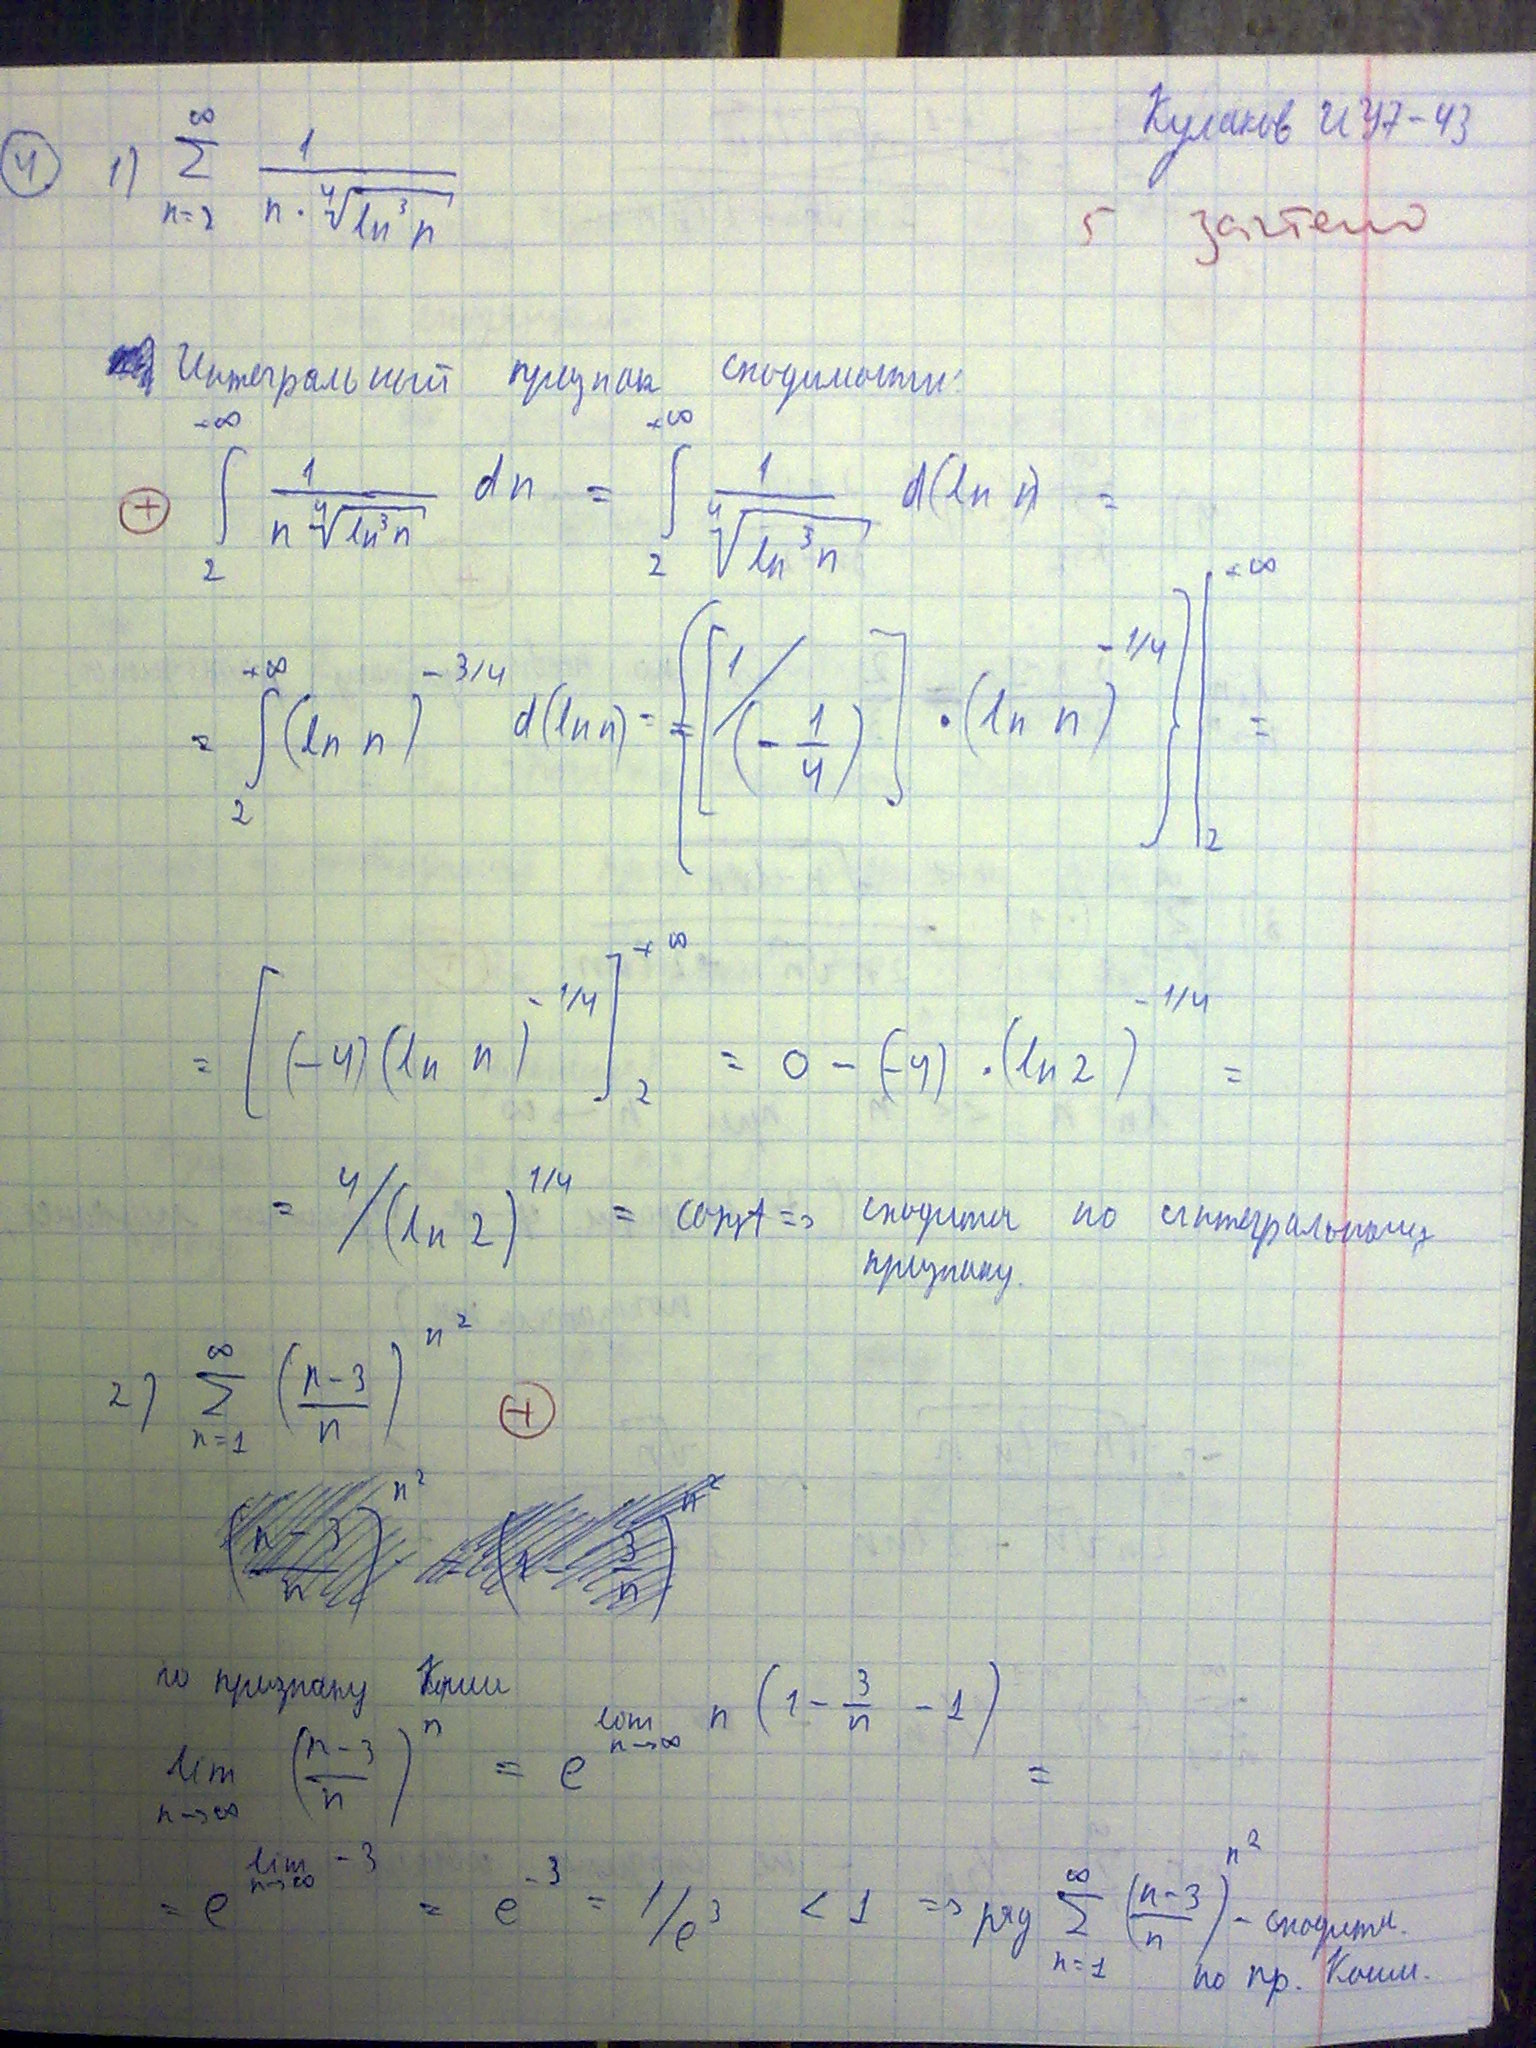 Кулаков ИУ7-43
5 зачтено
④ 1) ∑_{n=2}^{∞} 1/(n·⁴√(ln³n))
Интегральный признак сходимости:
⊕ ∫_2^{+∞} 1/(n ⁴√(ln³n)) dn = ∫_2^{+∞} 1/⁴√(ln³n) d(ln n) =
= ∫_2^{+∞} (ln n)^{-3/4} d(ln n) = = {[1/(-1/4)]·(ln n)^{-1/4}}|_2^{+∞} =
= [(-4)(ln n)^{-1/4}]_2^{+∞} = 0 - (-4)·(ln 2)^{-1/4} =
= 4/(ln 2)^{1/4} = const => сходится по интегральному
признаку.
2) ∑_{n=1}^{∞} ((n-3)/n)^{n²} ⊕
по признаку Коши
lim_{n→∞} ((n-3)/n)^n = e^{lim_{n→∞} n(1 - 3/n - 1)} =
= e^{lim_{n→∞} -3} = e^{-3} = 1/e³ < 1 => ряд ∑_{n=1}^{∞} ((n-3)/n)^{n²} - сходится.
по пр. Коши.